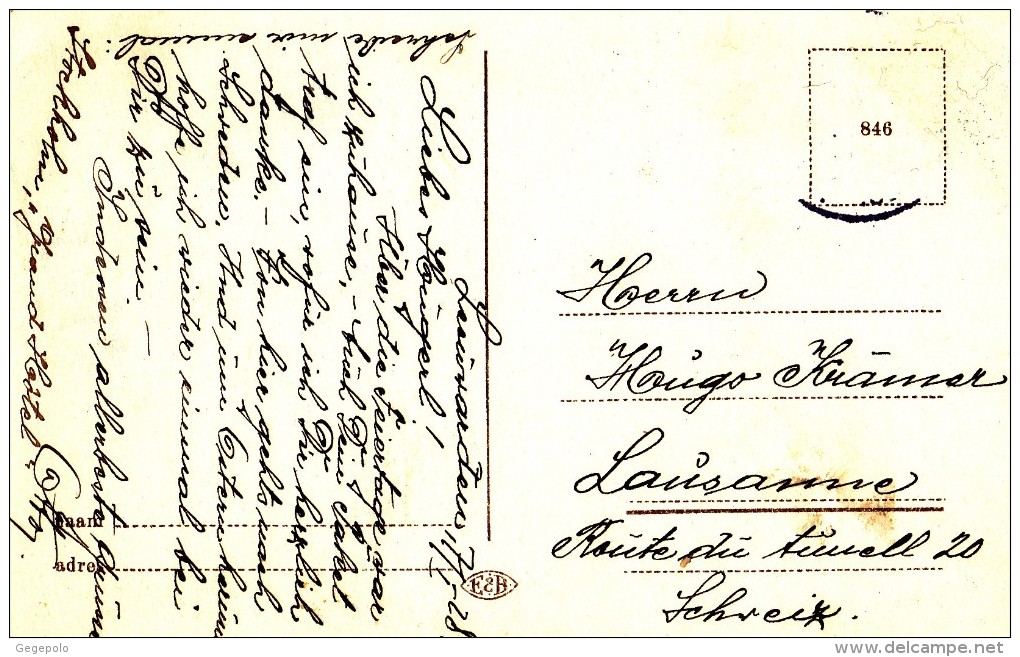 Leeuwarden, 7/I. 28.
Liebes Hugerl!
Über die Feiertage war
ich zuhause, - auch Dein Paket
traf ein, wofür ich Dir herzlich
danke. - Von hier gehts nach
Schweden. Und um Ostern herum
hoffe ich wieder einmal bei
Dir zu sein. -
Indessen allerbeste Grüsse
Stockholm, "Grand Hôtel"
Schreibe mir einmal:
naam
adres
E&B
846
Herrn
Hugo Krämer
Lausanne
Route du tunell 20
Schweiz.
Gegepolo
delcampe.net